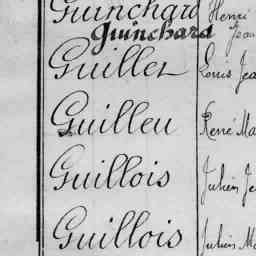 Guinchard Henri
Guinchard Jean
Guillet Louis Jea
Guilleu René Ma
Guillois Julien Je
Guillois Julien Ma